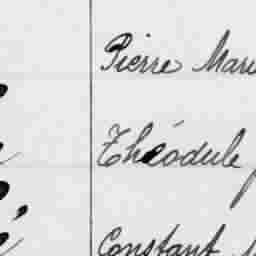 Pierre Mari
Théodule
Constant